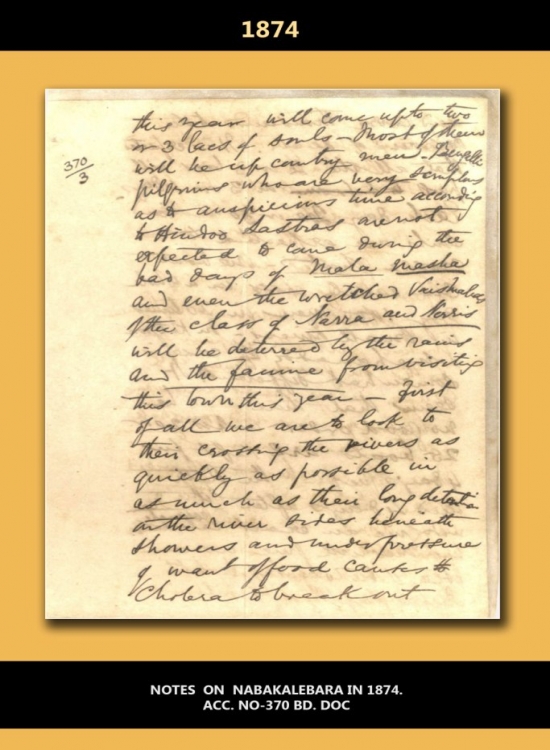 1874
370
3
this year will come upto two
or 3 lacs of souls - Most of them
will be up country men. Bengali
pilgrims who are very scrupulous
as to auspicious time according
to Hindoo Sastras are not
expected to come during the
bad days of Mala masha
and even the wretched Vaishnabas
of the class of Narra and Norris
will be deterred by the rains
and the famine from visiting
this town this year - First
of all we are to look to
their crossing the rivers as
quickly as possible in
as much as their long detention
on the river sides beneath
showers and under pressure
of want of food causes
Cholera to break out
NOTES ON NABAKALEBARA IN 1874.
ACC. NO-370 BD. DOC